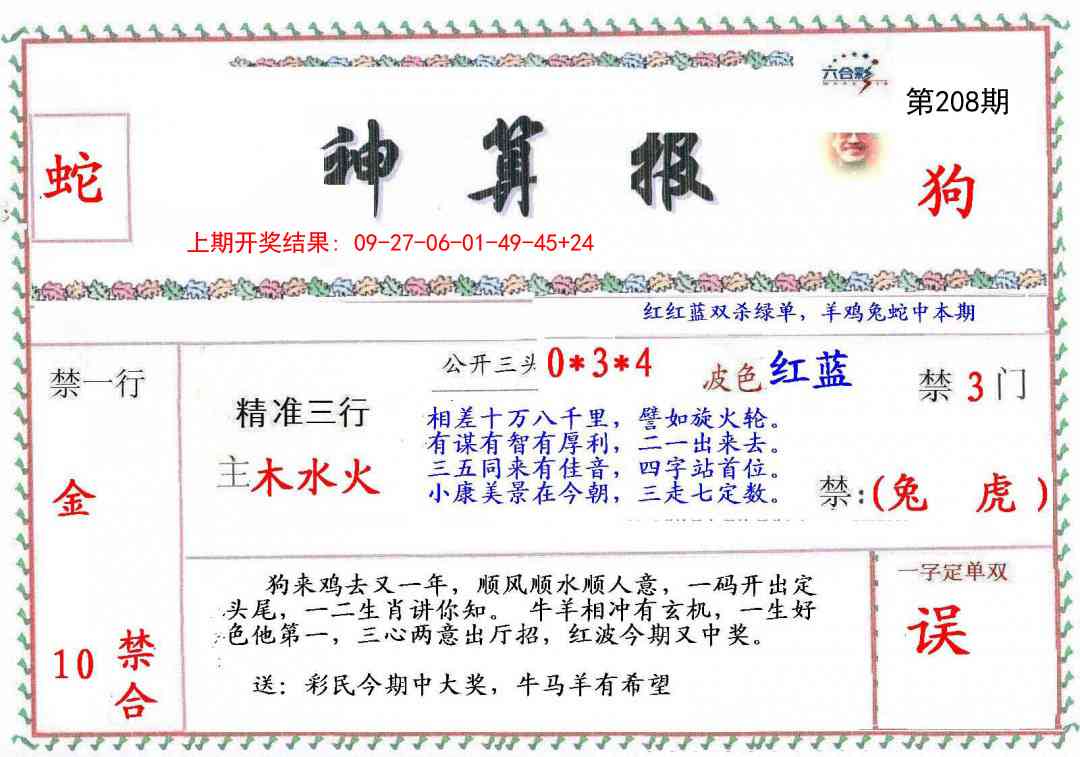 六合彩
第208期
蛇
神算报
狗
上期开奖结果：09-27-06-01-49-45+24
红红蓝双杀绿单，羊鸡兔蛇中本期
禁一行
公开三头 0*3*4
波色 红蓝
禁 3 门
精准三行
主木水火
相差十万八千里，譬如旋火轮。
有谋有智有厚利，二一出来去。
三五同来有佳音，四字站首位。
小康美景在今朝，三走七定数。
禁：(兔 虎)
金
狗来鸡去又一年，顺风顺水顺人意，一码开出定
头尾，一二生肖讲你知。 牛羊相冲有玄机，一生好
色他第一，三心两意出厅招，红波今期又中奖。
送：彩民今期中大奖，牛马羊有希望
一字定单双
误
10 禁合